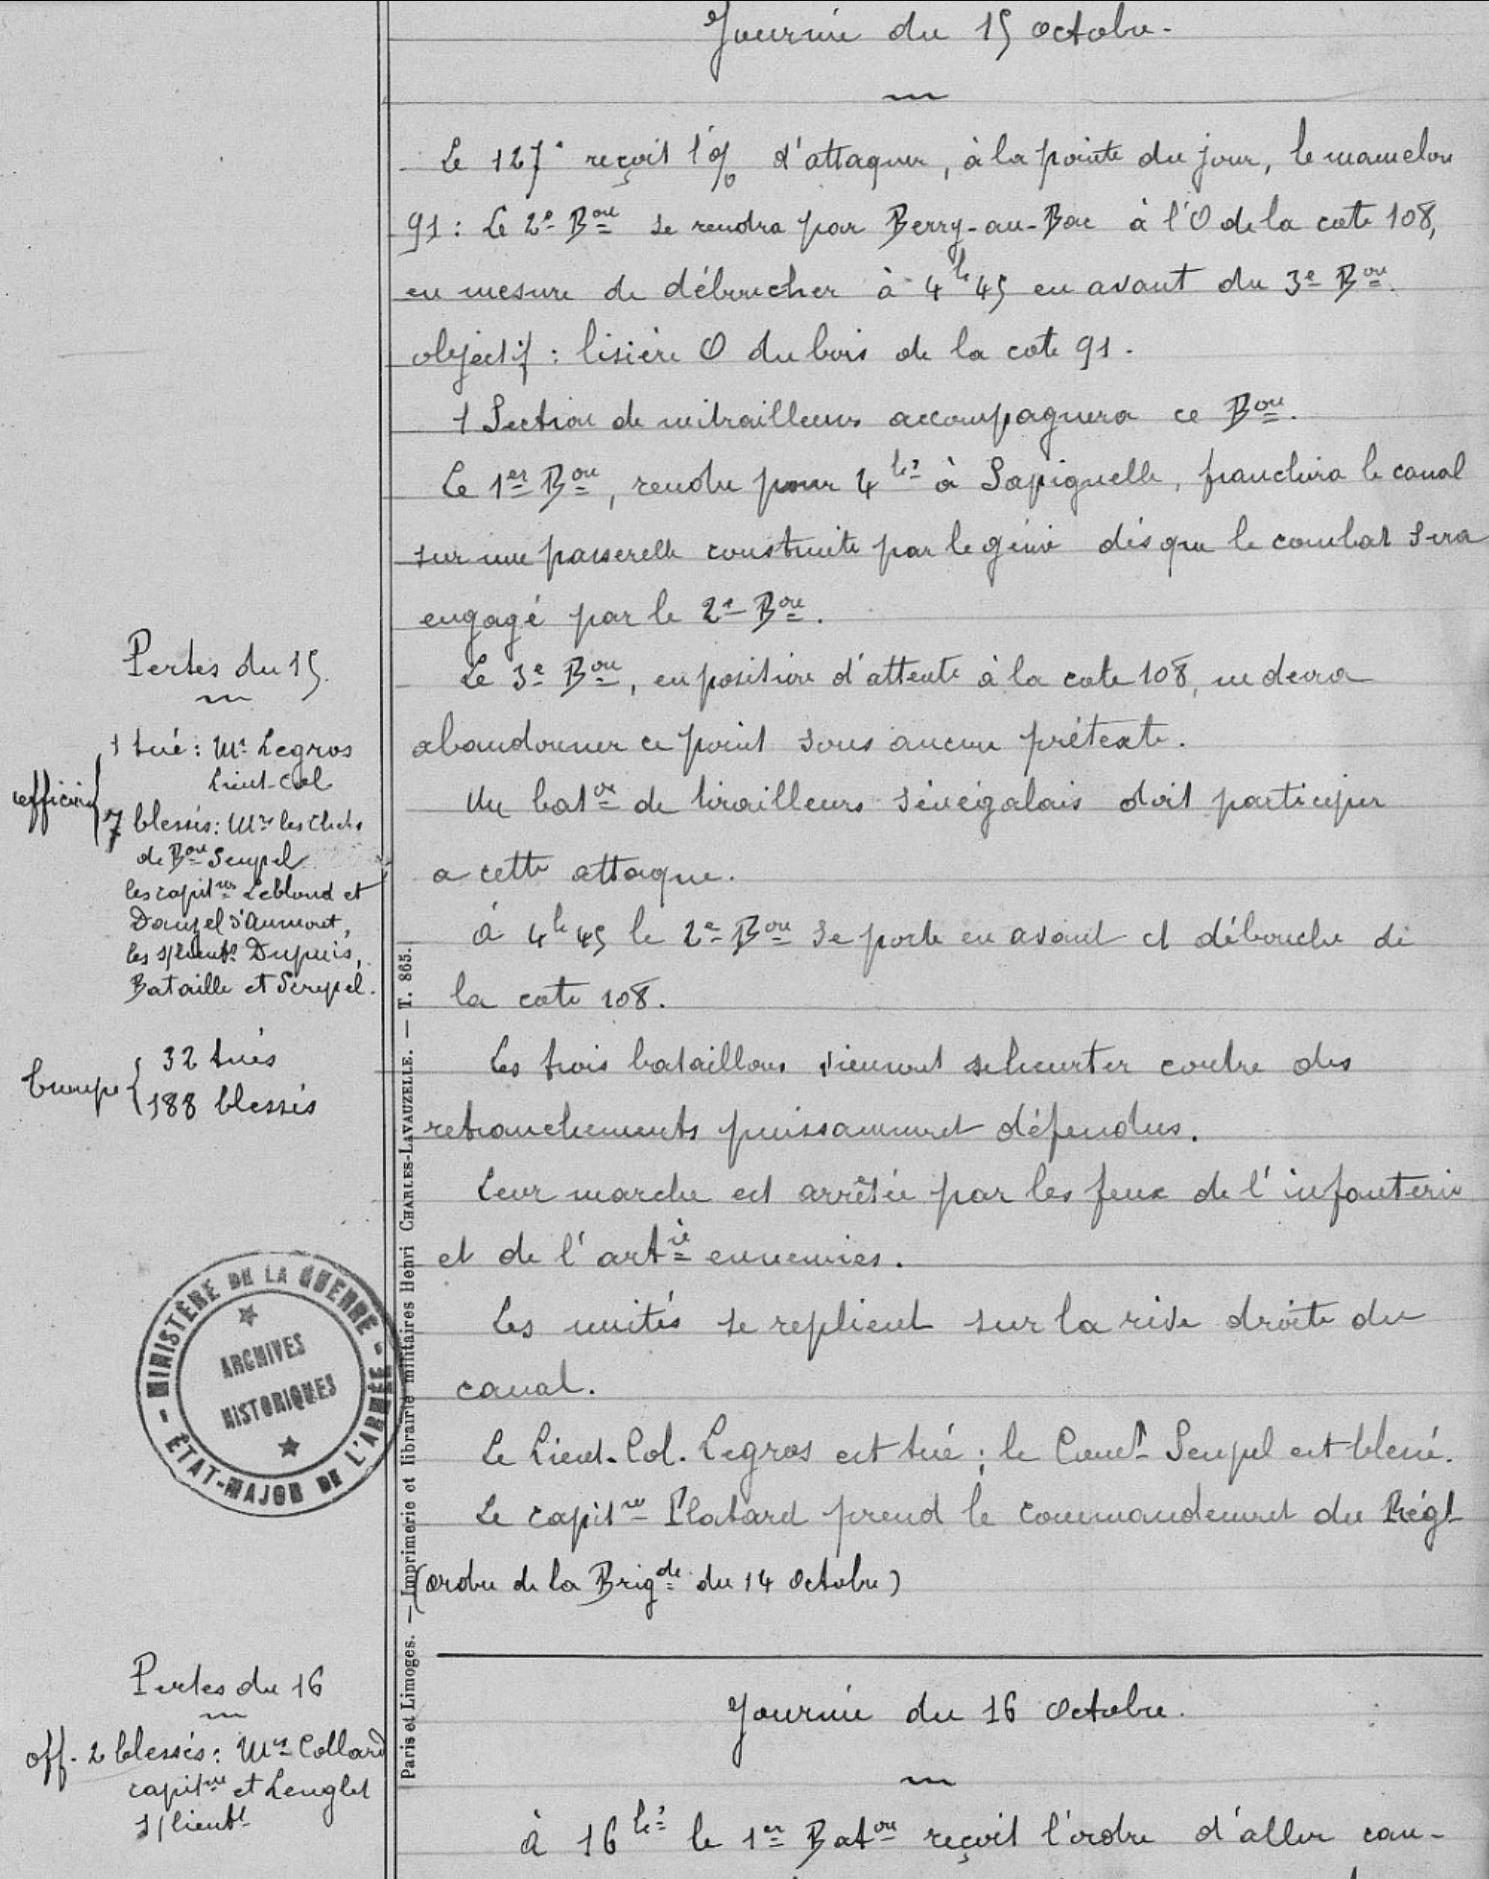 Journée du 15 octobre.
Le 127e reçoit l'o/ d'attaquer, à la pointe du jour, le mamelon
91 : Le 2e Bon se rendra par Berry-au-Bac à l'O de la cote 108,
en mesure de déboucher à 4h45 en avant du 3e Bon.
objectif : lisière O du bois de la cote 91.
1 Section de mitrailleuses accompagnera ce Bon.
Le 1er Bon, rendu pour 4hs à Sapigneulle, franchira le canal
sur une passerelle construite par le génie dès que le combat sera
engagé par le 2e Bon.
Le 3e Bon, en position d'attente à la cote 108, ne devra
abandonner ce point sous aucun prétexte.
Un baton de tirailleurs sénégalais doit participer
a cette attaque.
à 4h45 le 2e Bon se porte en avant et débouche de
la cote 108.
Les trois bataillons viennent se heurter contre des
retranchements puissamment défendus.
Leur marche est arrêtée par les feux de l'infanterie
et de l'artie ennemies.
Les unités se replient sur la rive droite du
canal.
Le Lieut-Col. Legros est tué ; le Comt Seupel est blessé.
Le capitne Platard prend le commandement du Régt
(ordre de la Brigde du 14 Octobre)
Pertes du 15.
officiers
1 tué : Mr Legros
Lieut-Col
7 blessés : Mrs les Chefs
de Bon Seupel
les capitnes Leblond et
Danzel d'Aumont,
les s/lieutts Dupuis,
Bataille et
troupe
32 tués
188 blessés
MINISTÈRE DE LA GUERRE
ARCHIVES
HISTORIQUES
ÉTAT-MAJOR DE L'ARMÉE
Paris et Limoges. — Imprimerie et librairie militaires Henri CHARLES-LAVAUZELLE. — T. 865.
Journée du 16 Octobre.
à 16hs le 1er Baton reçoit l'ordre d'aller can-
Pertes du 16
off. 2 blessés : Mrs Collard
capitne et Lenglet
s/lieutt